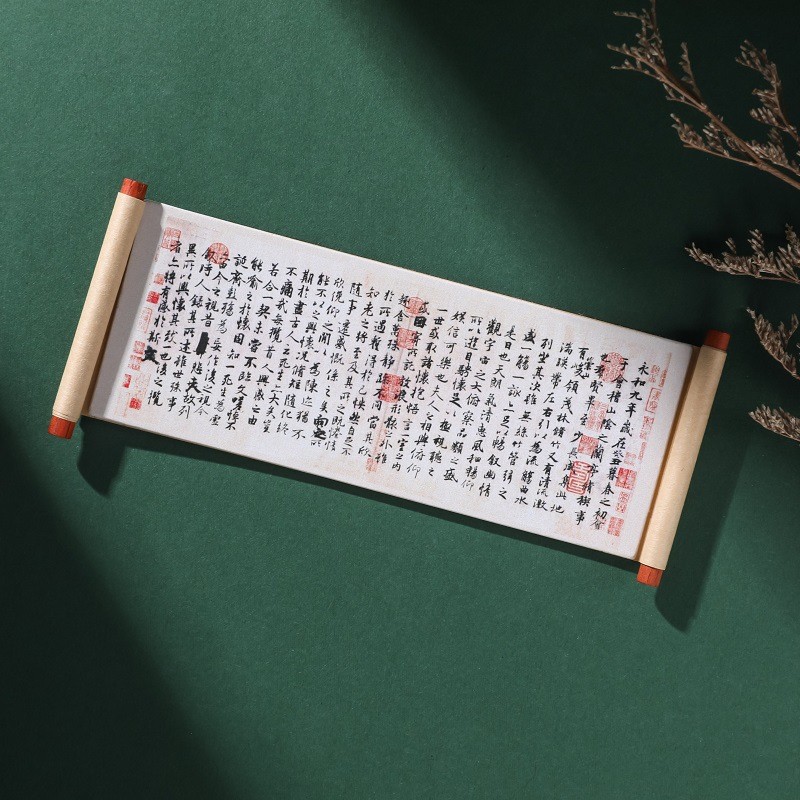 永和九年歲在癸丑暮春之初會
于會稽山陰之蘭亭脩稧事
也群賢畢至少長咸集此地
有崇山峻領茂林脩竹又有清流激
湍暎帶左右引以為流觴曲水
列坐其次雖無絲竹管弦之
盛一觴一詠亦足以暢叙幽情
是日也天朗氣清惠風和暢仰
觀宇宙之大俯察品類之盛
所以遊目騁懷足以極視聽之
娛信可樂也夫人之相與俯仰
一世或取諸懷抱悟言一室之內
或因寄所託放浪形骸之外雖
趣舍萬殊靜躁不同當其欣
於所遇暫得於己怏然自足不
知老之將至及其所之既惓情
隨事遷感慨係之矣向之所
欣俛仰之間以為陳迹猶不
能不以之興懷況脩短隨化終
期於盡古人云死生亦大矣豈
不痛哉每攬昔人興感之由
若合一契未嘗不臨文嗟悼不
能喻之於懷固知一死生為虛
誕齊彭殤為妄作後之視今
亦由今之視昔悲夫故列
敘時人錄其所述雖世殊事
異所以興懷其致一也後之攬
者亦將有感於斯文